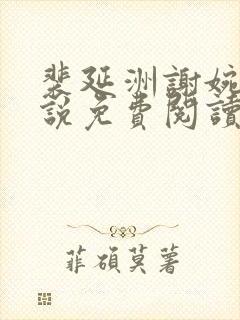 裴延洲謝婉
說免費閱讀
菲碩莫著